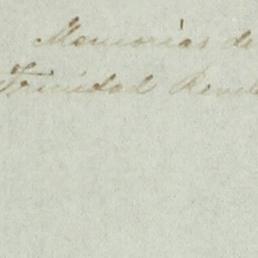 Memorias de
Trinidad